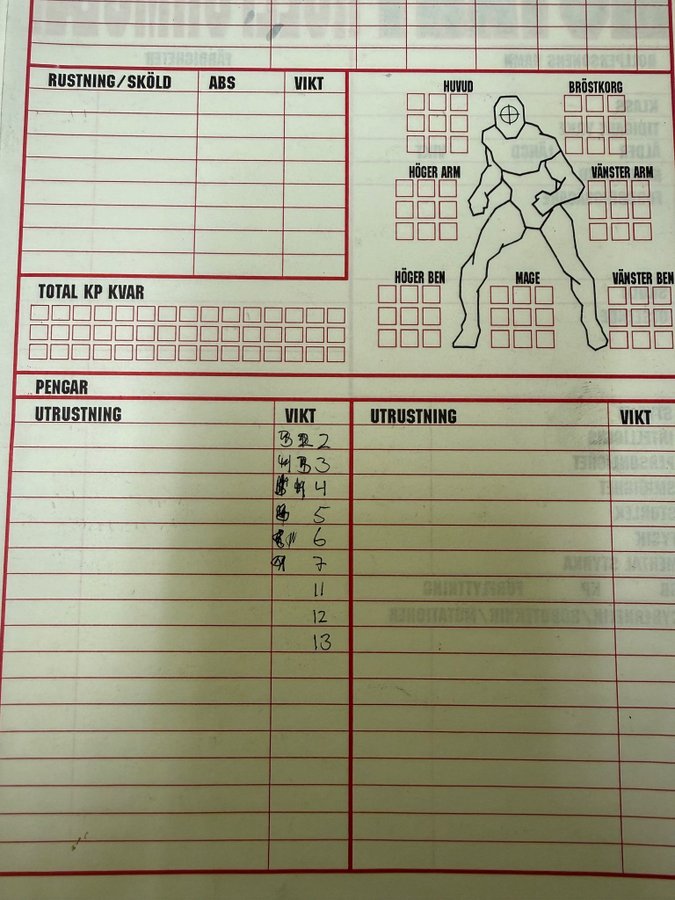 RUSTNING/SKÖLD ABS VIKT
HUVUD BRÖSTKORG
HÖGER ARM VÄNSTER ARM
HÖGER BEN MAGE VÄNSTER BEN
TOTAL KP KVAR
PENGAR
UTRUSTNING VIKT UTRUSTNING VIKT
2
3
4
5
6
7
11
12
13